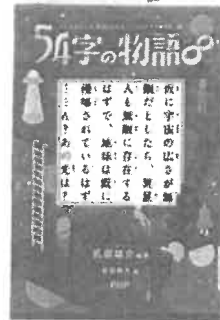 54字の物語∞
仮に宇宙の広さが無
限だとしたら、異星
人も無限に存在する
はずで、地球は既に
侵略されているはず
ん?あの光は?
氏田雄介